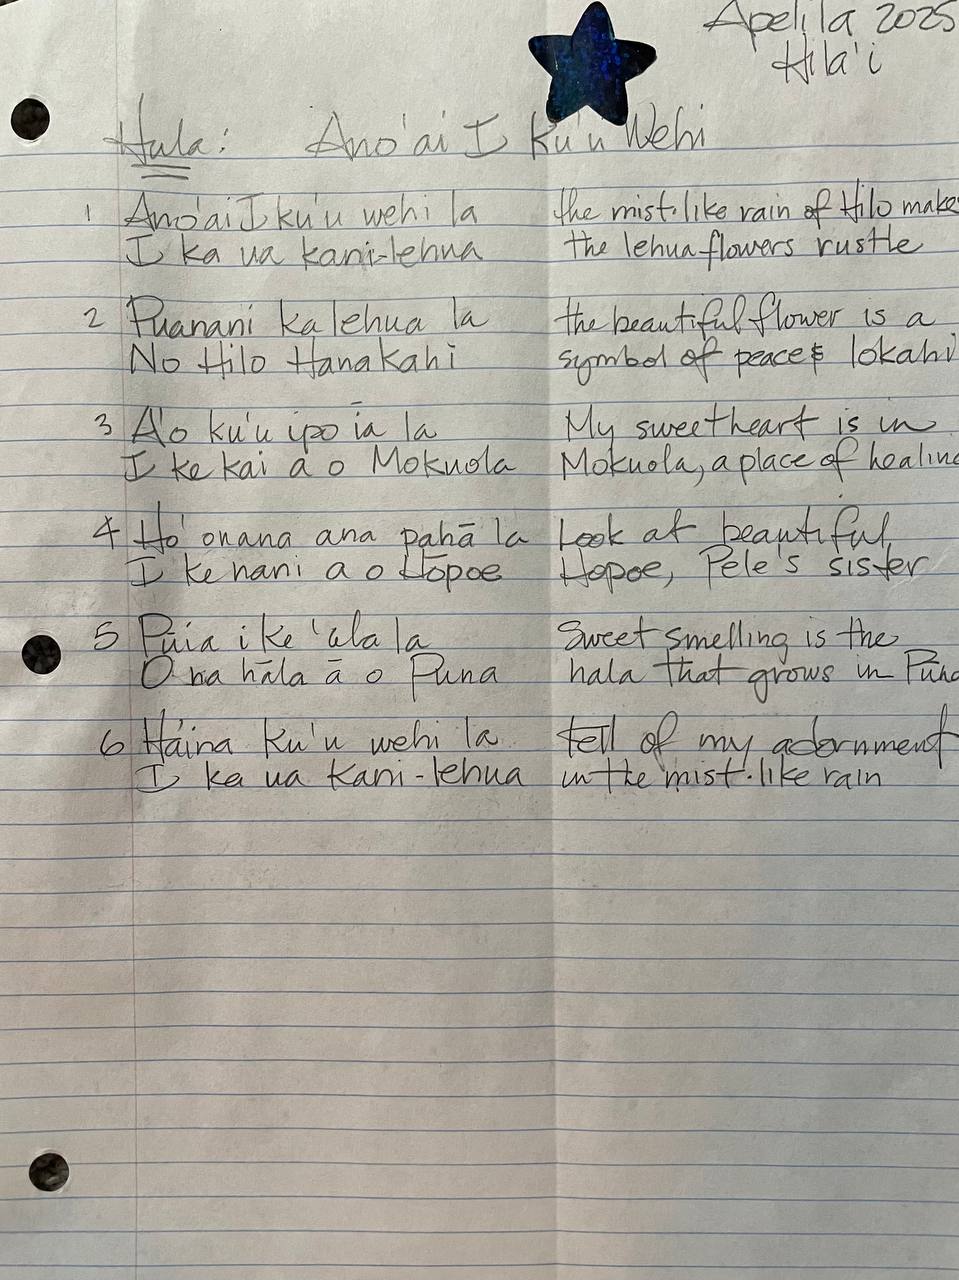 Apelila 2025
Hila'i
Hula: Ano'ai I Ku'u Wehi
1 Ano'ai I ku'u wehi la the mist-like rain of Hilo make
I ka ua kani-lehua the lehua flowers rustle
2 Puanani ka lehua la the beautiful flower is a
No Hilo Hanakahi symbol of peace & lokahi
3 A'o ku'u ipo īa la My sweetheart is in
I ke kai a o Mokuola Mokuola, a place of healing
4 Ho'onana ana pahā la Look at beautiful
I ke nani a o Hōpoe Hopoe, Pele's sister
5 Puia i ke 'ala la Sweet smelling is the
O na hāla ā o Puna hala that grows in Puna
6 Ha'ina Ku'u wehi la tell of my adornment
I ka ua Kani-lehua in the mist-like rain